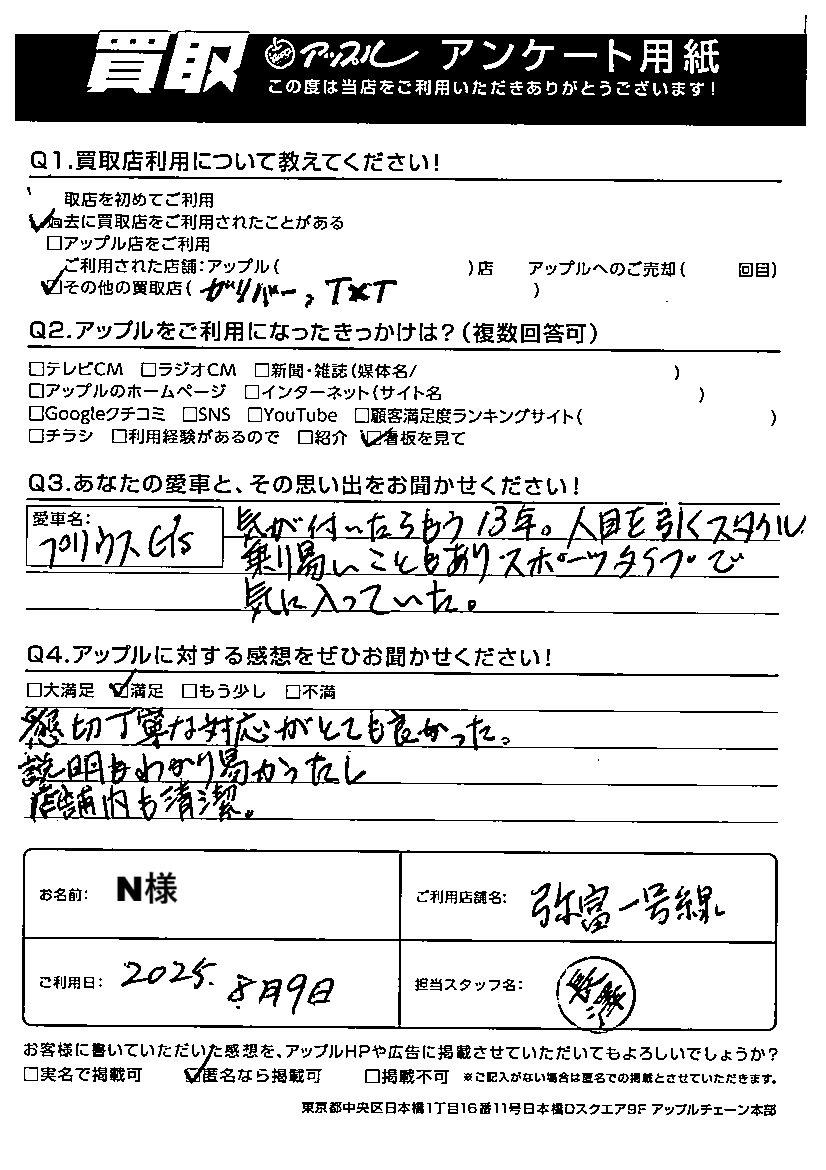 買取 アップル アンケート用紙
この度は当店をご利用いただきありがとうございます!
Q1.買取店利用について教えてください!
取店を初めてご利用
☑過去に買取店をご利用されたことがある
□アップル店をご利用
ご利用された店舗:アップル( )店 アップルへのご売却( 回目)
☑その他の買取店(ガリバー, TXT )
Q2.アップルをご利用になったきっかけは?(複数回答可)
□テレビCM □ラジオCM □新聞・雑誌(媒体名/ )
□アップルのホームページ □インターネット(サイト名 )
□Googleクチコミ □SNS □YouTube □顧客満足度ランキングサイト( )
□チラシ □利用経験があるので □紹介 ☑看板を見て
Q3.あなたの愛車と、その思い出をお聞かせください!
愛車名:
プリウス G's
気が付いたらもう13年。人目を引くスタイル
乗り易いこともありスポーツタイプで
気に入っていた。
Q4.アップルに対する感想をぜひお聞かせください!
□大満足 ☑満足 □もう少し □不満
懇切丁寧な対応がとても良かった。
説明もわかり易かったし
店舗内も清潔。
お名前: N様
ご利用店舗名: 弥富一号線
ご利用日: 2025. 8月9日
担当スタッフ名:
お客様に書いていただいた感想を、アップルHPや広告に掲載させていただいてもよろしいでしょうか?
□実名で掲載可 ☑匿名なら掲載可 □掲載不可 ※ご記入がない場合は匿名での掲載とさせていただきます。
東京都中央区日本橋1丁目16番11号日本橋Dスクエア9F アップルチェーン本部